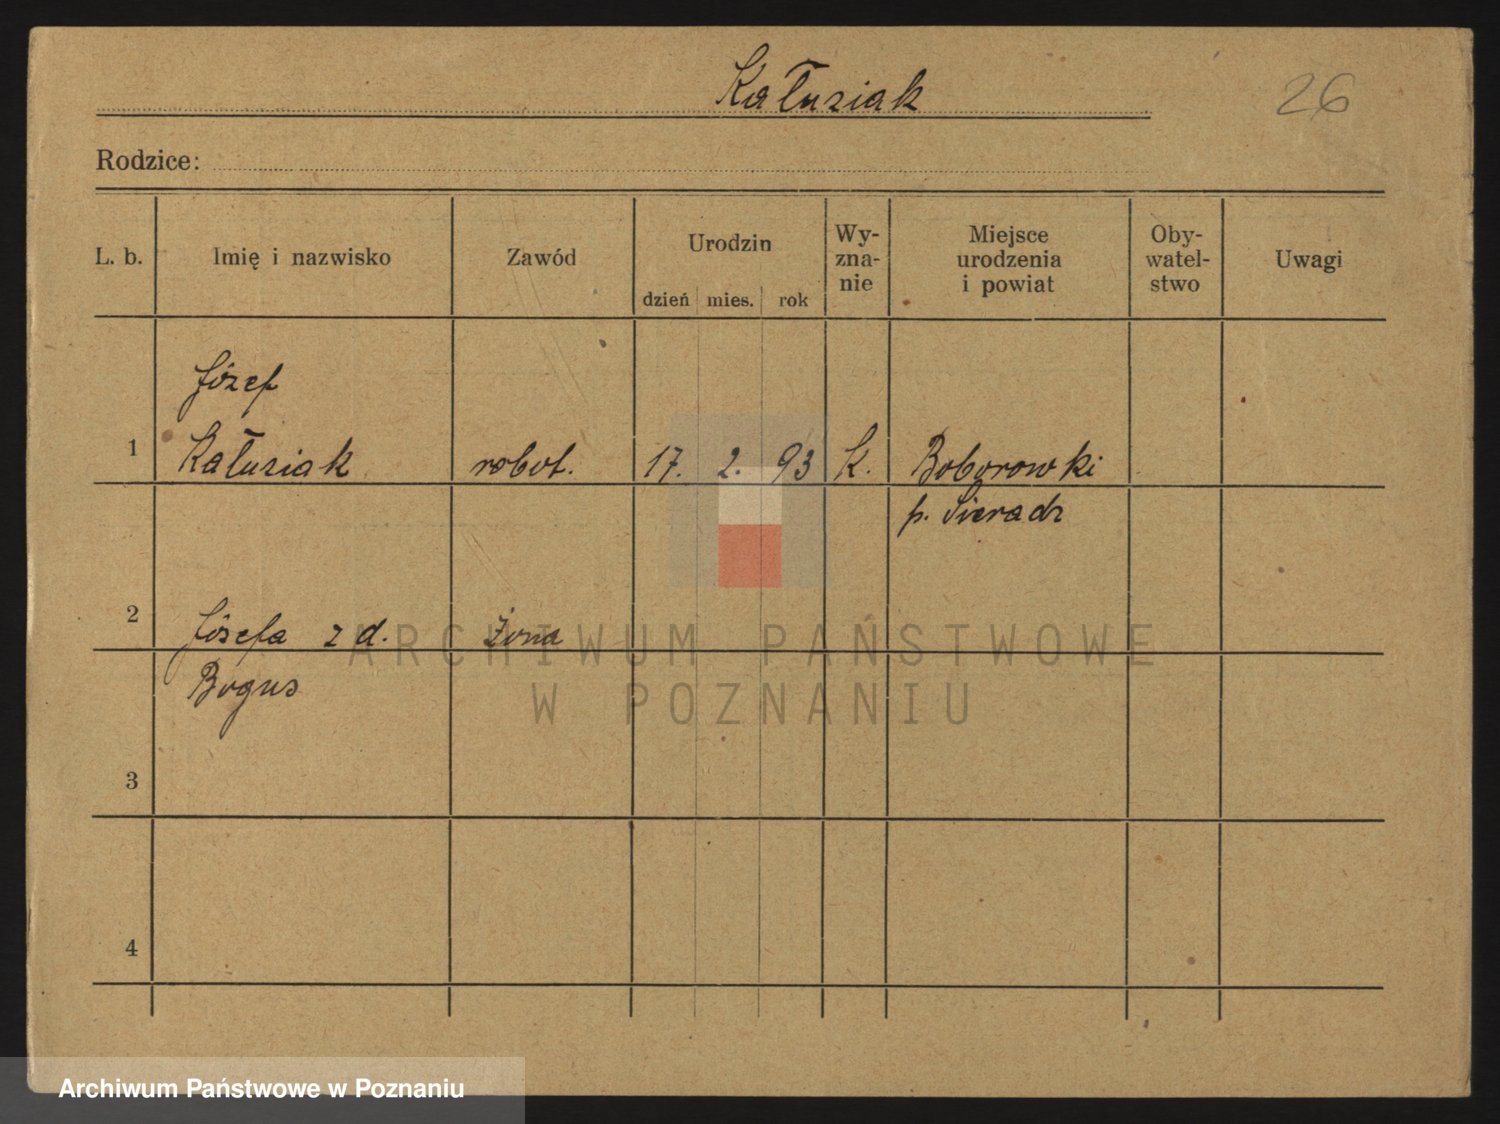 Kałuziak
26
Rodzice:
L. b.
Imię i nazwisko
Zawód
Urodzin
dzień mies. rok
Wy-
zna-
nie
Miejsce
urodzenia
i powiat
Oby-
watel-
stwo
Uwagi
Józef
1 Kałuziak robot. 17. 2. 93 K. Boborowki
p. Sieradz
2 Józefa z d. żona
Bogus
3
4
ARCHIWUM PAŃSTWOWE
W POZNANIU
Archiwum Państwowe w Poznaniu